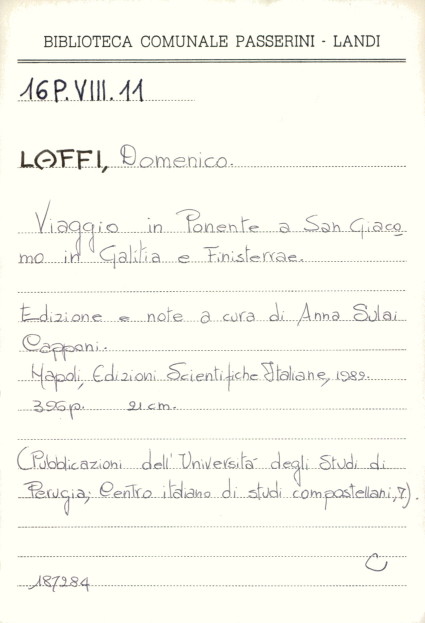 BIBLIOTECA COMUNALE PASSERINI - LANDI
16P.VIII.11
LAFFI, Domenico.
Viaggio in Ponente a San Giaco
mo in Galitia e Finisterrae.
Edizione e note a cura di Anna Sulai
Capponi.
Napoli, Edizioni Scientifiche Italiane, 1989.
396p. 21 cm.
(Pubblicazioni dell'Università degli Studi di
Perugia; Centro italiano di studi compostellani,7).
C
187284